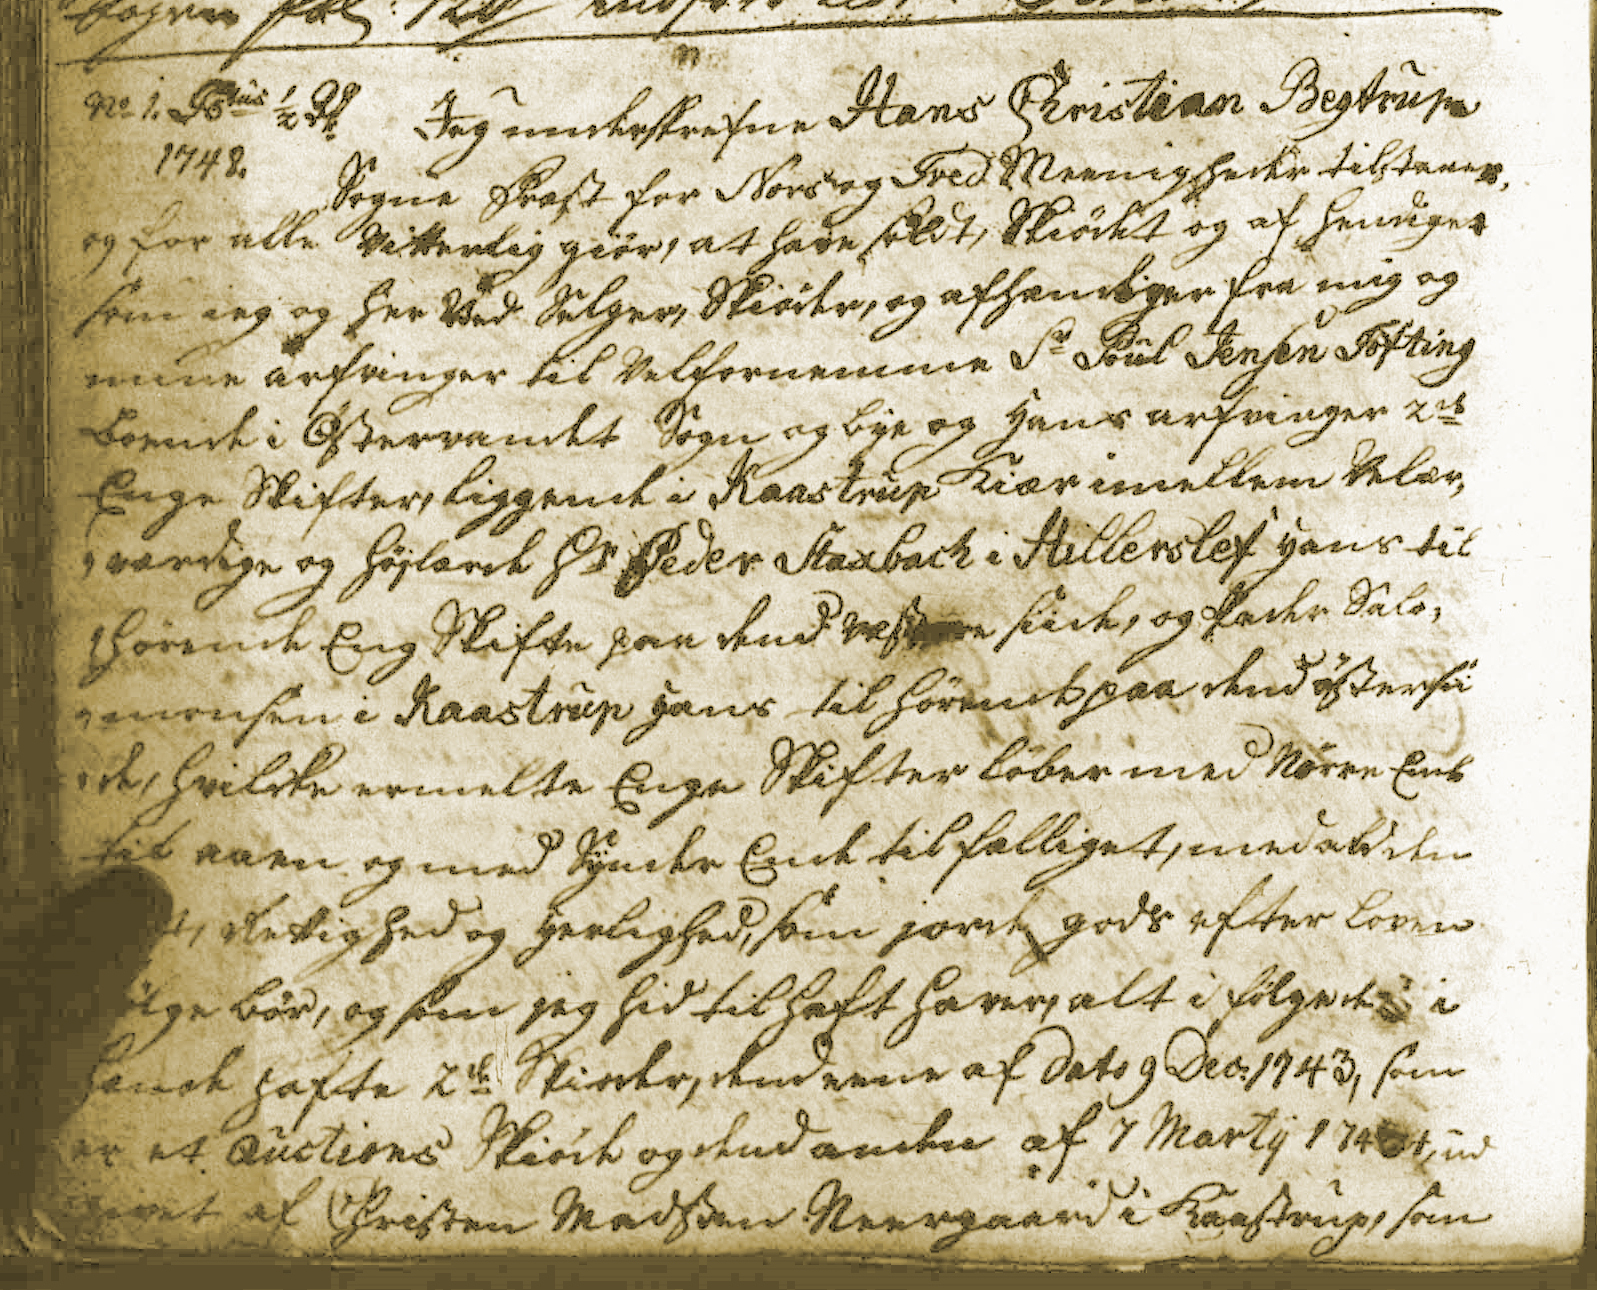 No 1. Focus ½ Rdr
1748.
Jeg underskrefne Hans Christian Begtrup
Sogne Præst for Nors og Tved Meenigheder tilstaaer,
og for alle Vitterlig giör, at have soldt, Skiödet og af hendiget
som ieg og her Ved Selger, Skiöder, og afhændiger fra mig og
mine arfvinger til Velfornemme Sr Poul Jensen Töfting
boende i Östervandet Sogn og bye og Hans arfvinger 2de
Enge Skifter, liggende i Kaastrup Kiær imellem Velær,
,værdige og Höjlærde Hr Peder Staxbach i Hillerslef Hans til
,hörende Eng Skifte paa dend vestere siide, og Peder Salo,
,monsen i Kaastrup Hans til hörende paa dend östersii
,de, hvilcke ermelte Enge Skifter löber med Nörre Ende
til aaen og med Synder Ende til fælliget, med ald den
Rettighed og Herlighed, som jorde gods efter Loven
fölge bör, og som jeg hid til haft haver, alt i fölge de i
hænde hafte 2de Skiöder, dend eene af dato 9 Dec. 1743, som
er et Auctions Skiöde og dend anden af 7 Martij 174 ud
givet af Christen Madsen Neergaard i Kaastrup, som